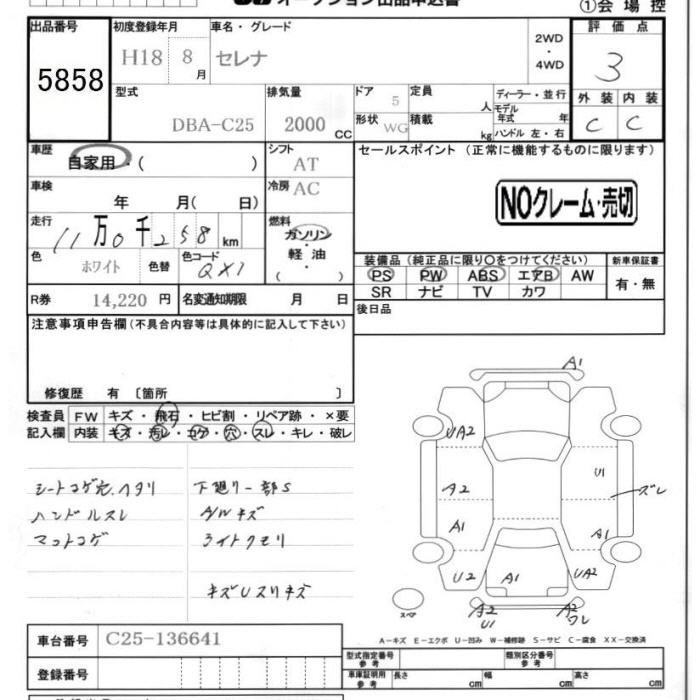 オークション出品申込書
①会場控
出品番号 初度登録年月 車名・グレード 評価点
5858 H18 8月 セレナ 2WD・4WD 3
型式 排気量 ドア 定員 ディーラー・並行 外装 内装
DBA-C25 2000 CC 5 人 モデル年式 年 C C
形状 WG 積載 kg ハンドル 左・右
車歴 自家用・( ) シフト AT セールスポイント (正常に機能するものに限ります)
車検 年 月( 日) 冷房 AC NOクレーム・売切
走行 11万0千258km 燃料 ガソリン・軽油 ( )
色 ホワイト 色替 色コード QX1
装備品 (純正品に限り○をつけてください) 新車保証書
PS PW ABS エアB AW 有・無
SR ナビ TV カワ
R券 14,220円 名変通知期限 月 日 後日品
注意事項申告欄(不具合内容等は具体的に記入して下さい)
修復歴 有 〔箇所 〕
検査員 FW キズ・飛石・ヒビ割・リペア跡・×要
記入欄 内装 キズ・汚レ・コゲ・穴・スレ・キレ・破レ
シートコゲ穴、ヘタリ 下廻リ一部S
ハンドルスレ A/Wキズ
マットコゲ ライトクモリ
キズUスリキズ
A1
UA2
U1
A2 ズレ
A1 A1
U2 A1 UA2
スペア A2 U1 A2 ワレ
A-キズ E-エクボ U-凹み W-補修跡 S-サビ C-腐食 XX-交換済
車台番号 C25-136641
型式指定番号 参考 類別区分番号 参考
登録番号 車庫証明用 参考 長さ cm 幅 cm 高さ cm